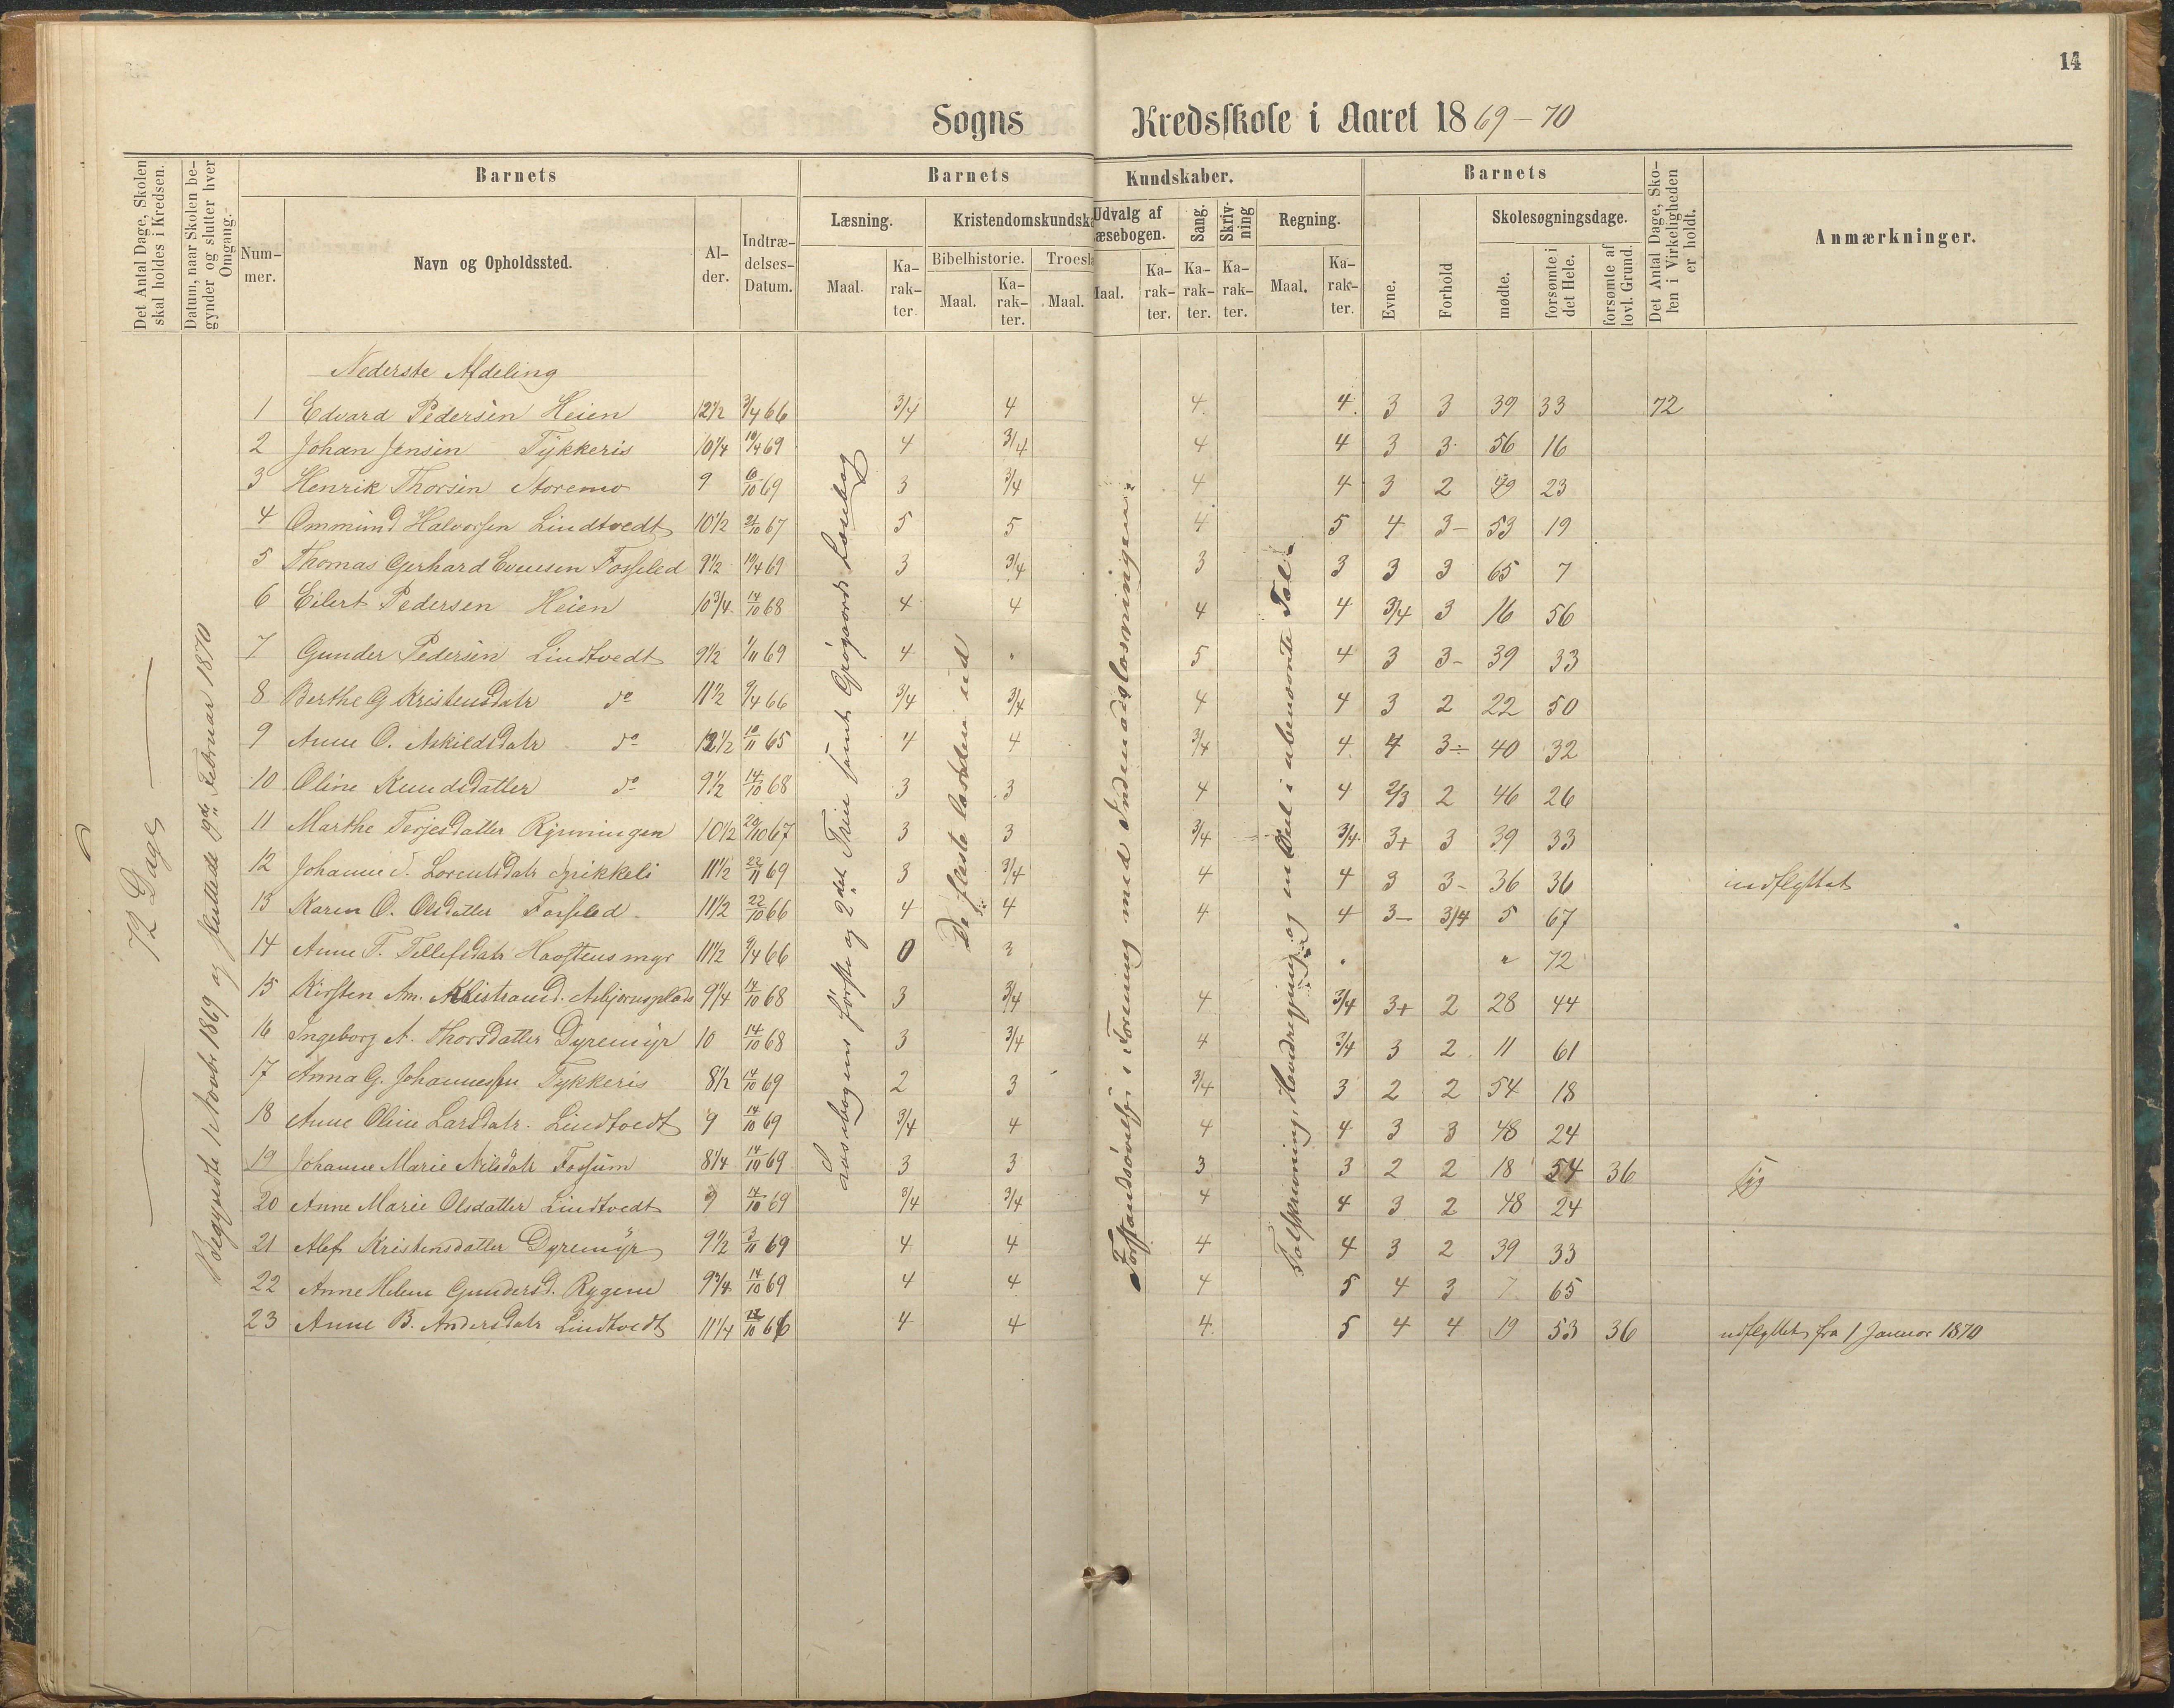 14
Sogns Kredsskole i Aaret 1869-70
Det Antal Dage, Skolen skal holdes i Kredsen.
Datum, naar Skolen begynder og slutter hver Omgang.
Barnets
Nummer.
Navn og Opholdssted.
Alder.
Indtrædelses-Datum.
Barnets Kundskaber.
Læsning.
Maal.
Karakter.
Kristendomskundska
Bibelhistorie.
Maal.
Karakter.
Troesl
Maal.
Udvalg af
æsebogen.
Maal.
Karakter.
Sang.
Karakter.
Skrivning
Karakter.
Regning.
Maal.
Karakter.
Barnets
Evne.
Forhold
Skolesøgningsdage.
mødte.
forsømte i det Hele.
forsømte af lovl. Grund.
Det Antal Dage, Skolen i Virkeligheden er holdt.
Anmærkninger.
72 Dage
Begyndte 1 Novbr 1869 og sluttede 19de Februar 1870
Læsebogens første og 2det Trin samt Grøgaards Læsebog
De fleste læste den ud
Forstandsøvelse i Forening med Indenadslæsningen
Talskrivning, Hovedregning og en Deel i ubenævnte Tal
Nederste Afdeling
1 Edvard Pedersen Heien 12 1/2 3/4 66 3/4 4 4 4 3 3 39 33 72
2 Johan Jensen Tykkeris 10 1/4 19/4 69 4 3/4 4 4 3 3 56 16
3 Henrik Thorsen Storemo 9 6/10 69 3 3/4 4 4 3 2 49 23
4 Ommund Halvorsen Lindtvedt 10 1/2 21/10 67 5 5 4 5 4 3- 53 19
5 Thomas Gerhard Evensen Fosseled 9 1/2 19/4 69 3 3/4 3 3 3 3 65 7
6 Eilert Pedersen Heien 10 3/4 14/10 68 4 4 4 4 3/4 3 16 56
7 Gunder Pedersen Lindtvedt 9 1/2 1/11 69 4 " 5 4 3 3- 39 33
8 Berthe G Kristensdatr do 11 1/2 9/4 66 3/4 3/4 4 4 3 2 22 50
9 Anne O. Askildsdatr do 12 1/2 10/11 65 4 4 3/4 4 4 3÷ 40 32
10 Oline Knudsdatter do 9 1/2 14/10 68 3 3 4 4 2/3 2 46 26
11 Marthe Terjesdatter Rynningen 10 1/2 20/10 67 3 3 3/4 3/4 3+ 3 39 33
12 Johanne Lorentsdatr Spikkeli 11 1/2 22/11 69 3 3/4 4 4 3 3- 36 36 indflyttet
13 Karen O. Olsdatter Fosseled 11 1/2 22/10 66 4 4 4 4 3- 3/4 5 67
14 Anne T. Tellefsdatr 11 1/2 9/4 66 0 3 " " 72
15 Kirsten Am. Asbjørnsplads 9 1/4 14/10 68 3 3/4 4 3/4 3+ 2 28 44
16 Ingeborg A. Thorsdatter Dyremyr 10 14/10 68 3 3/4 4 3/4 3 2 11 61
17 Anna G. Johannessen Tykkeris 8 1/2 14/10 69 2 3 3/4 3 2 2 54 18
18 Anne Oline Larsdatr. Lindtvedt 9 14/10 69 3/4 4 4 4 3 3 48 24
19 Johanne Marie Nilsdatr Fossum 8 1/4 14/10 69 3 3 3 3 2 2 18 54 36 syg
20 Anne Marie Olsdatter Lindtvedt 9 14/10 69 3/4 3/4 4 4 3 2 48 24
21 Alef Kristensdatter Dyremyr 9 1/2 3/11 69 4 4 4 4 3 2 39 33
22 Anne Helene Gundersd. Rygene 9 3/4 14/10 69 4 4 4 5 4 3 7 65
23 Anne B. Andersdatr Lindtvedt 11 1/4 66 4 4 4 5 4 4 19 53 36 udflyttet fra 1 Januar 1870